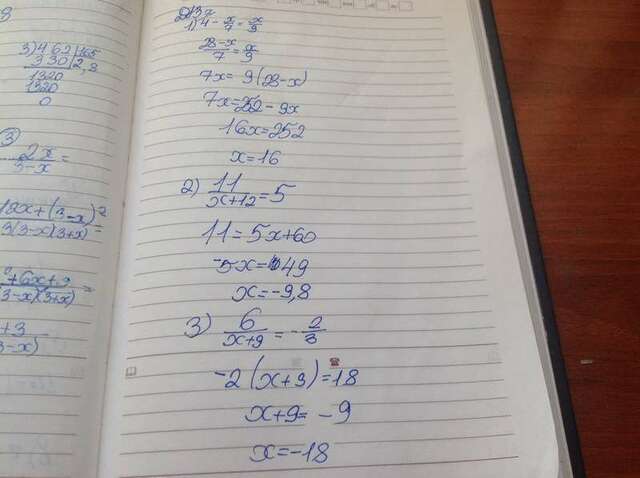 3) 462 | 165
330 | 2,8
1320
1320
0
3
2x / 3-x =
18x+(3-x)² / 3(3-x)(3+x) =
+6x+9 / 3-x)(3+x) =
+3 / 3-x)
1) 4 - x/7 = x/9
28-x / 7 = x/9
7x = 9(28-x)
7x = 252 - 9x
16x = 252
x = 16
2) 11 / x+12 = 5
11 = 5x+60
-5x = 49
x = -9,8
3) 6 / x+9 = - 2/3
-2(x+9) = 18
x+9 = -9
x = -18